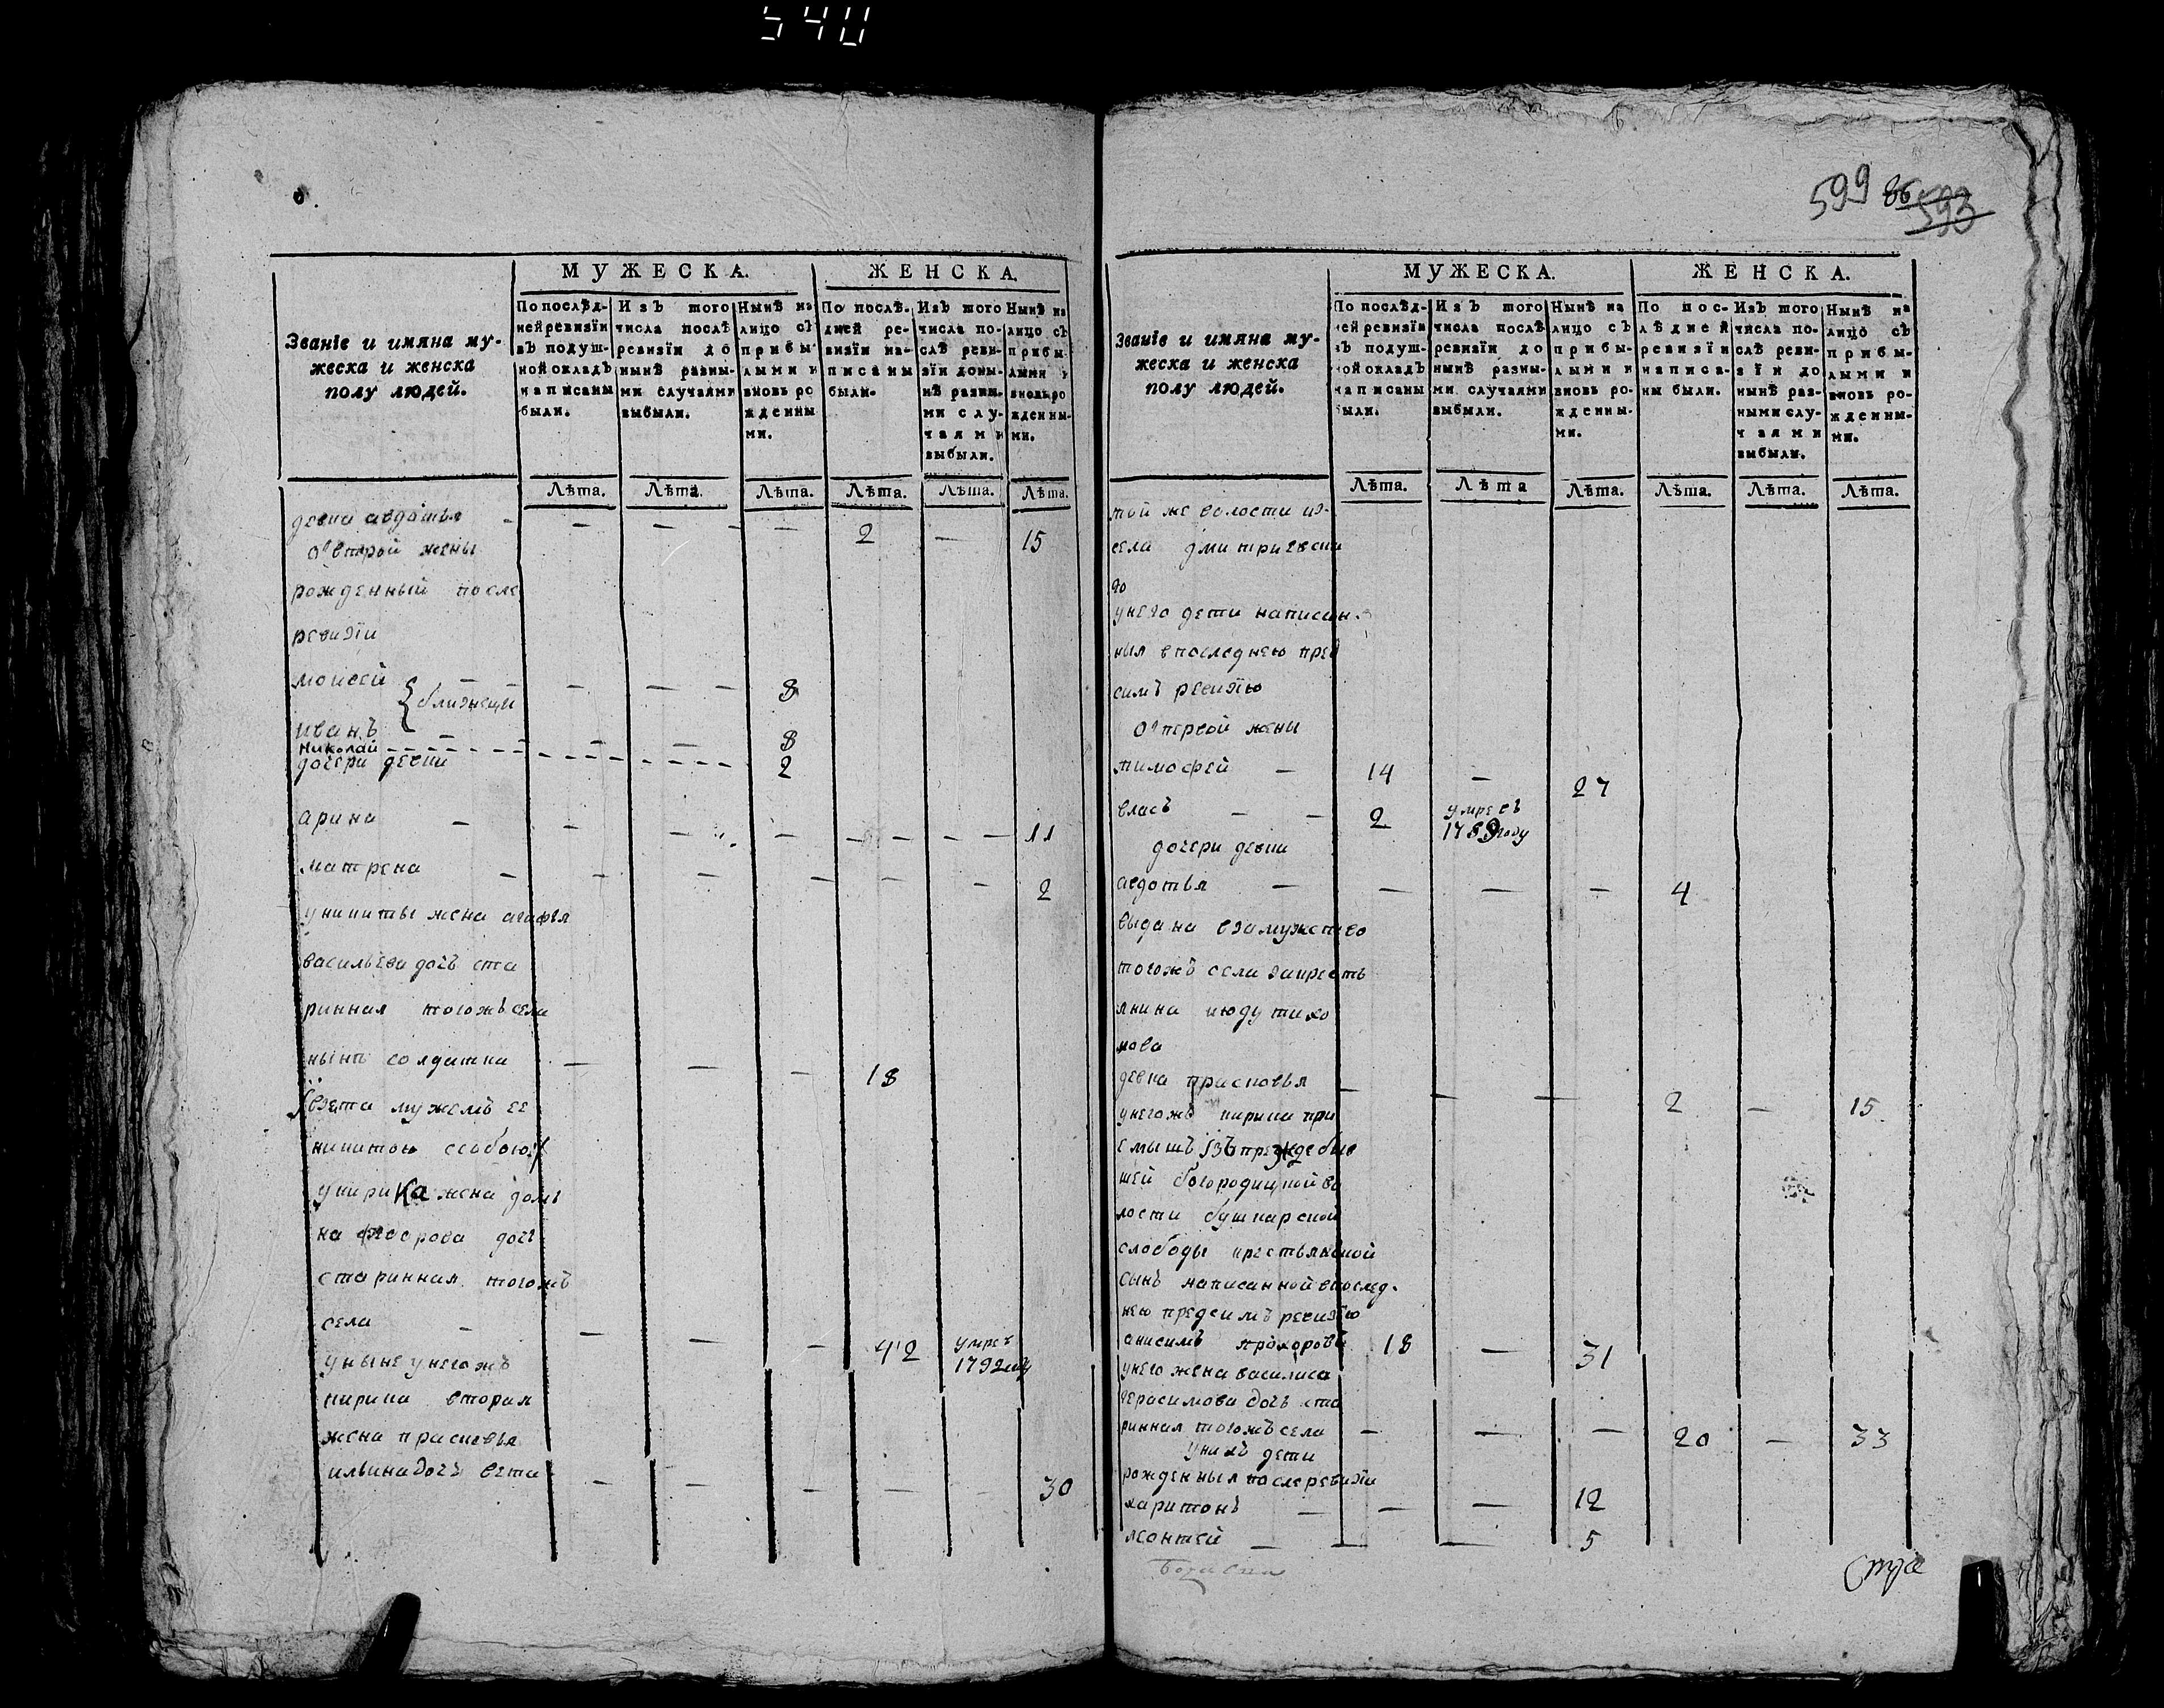 540
599 86 593
МУЖЕСКА. ЖЕНСКА.
Званіе и имяна му-
жеска и женска
полу людей.
По послѣд-
ней ревизіи
въ подуш-
ной окладъ
написаны
были.
Изъ того
числа послѣ
ревизіи до
нынѣ разны-
ми случаями
выбыли.
Нынѣ на
лицо съ
прибы-
лыми и
вновь ро
жденны
ми.
По послѣ-
дней ре-
визіи на-
писаны
были.
Изъ того
числа по-
слѣ реви-
зіи доны-
нѣ разны-
ми слу-
чаями
выбыли.
Нынѣ на
лицо съ
прибы
лыми и
вновь ро
жденны-
ми.
Лѣта. Лѣта. Лѣта. Лѣта. Лѣта. Лѣта.
девка авдотья - - - - - 2 - 15
отвторой жены
рожденный после
ревизіи
моисей - - - - - 8
близнецы
иванъ - - - 8
Николай 2
дочери девки
арина - - - - - - - 11
матрена - - - - - - 2
уникиты жена агафья
васильева дочь ста
ринная тогожъ села
нынѣ солдатка - - - 18
взята мужемъ ее
никитою ссобою
укирика жена домъ
на дочь
старинная тогожъ
села - - - - 42 умре
1792
уныне унегожъ
кирика вторая
жена прасковья
ильина дочь взята - - - - - 30
МУЖЕСКА. ЖЕНСКА.
Званіе и имяна му-
жеска и женска
полу людей.
По послѣд-
ней ревизіи
въ подуш-
ной окладъ
написаны
были.
Изъ того
числа послѣ
ревизіи до
нынѣ разны-
ми случаями
выбыли.
Нынѣ на
лицо съ
прибы-
лыми и
вновь ро-
жденны-
ми.
По пос-
лѣдней
ревизіи
написа-
ны были.
Изъ того
числа по-
слѣ реви-
зіи до
нынѣ раз-
ными слу-
чаями
выбыли.
Нынѣ на
лицо съ
прибы-
лыми и
вновь ро-
жденны-
ми.
Лѣта. Лѣта Лѣта. Лѣта. Лѣта. Лѣта.
той же волости из-
села дмитриевска
го
унего дети написан-
ныя впоследнею пред
симъ ревизію
отпервой жены
тимофей - 14 - 27
власъ - - 2 умре въ
1789 году
дочери девки
авдотья - - - - 4
выдана взамужство
тогожъ села закресть
янина июду тихо
нова
девка прасковья - - - 2 - 15
унегожъ кирика при
емышъ изъ преждебыв
шей богородицкой во
лости бушкарской
слободы крестьянской
сынъ написанной впослед-
нею предсимъ ревизію
анисимъ прохоровъ 18 - 31
унего жена василиса
герасимова дочь ста
ринная тогожъ села - - - 20 - 33
унихъ дети
рожденныя после ревизіи
харитонъ - - - 12
леонтей - - - 5